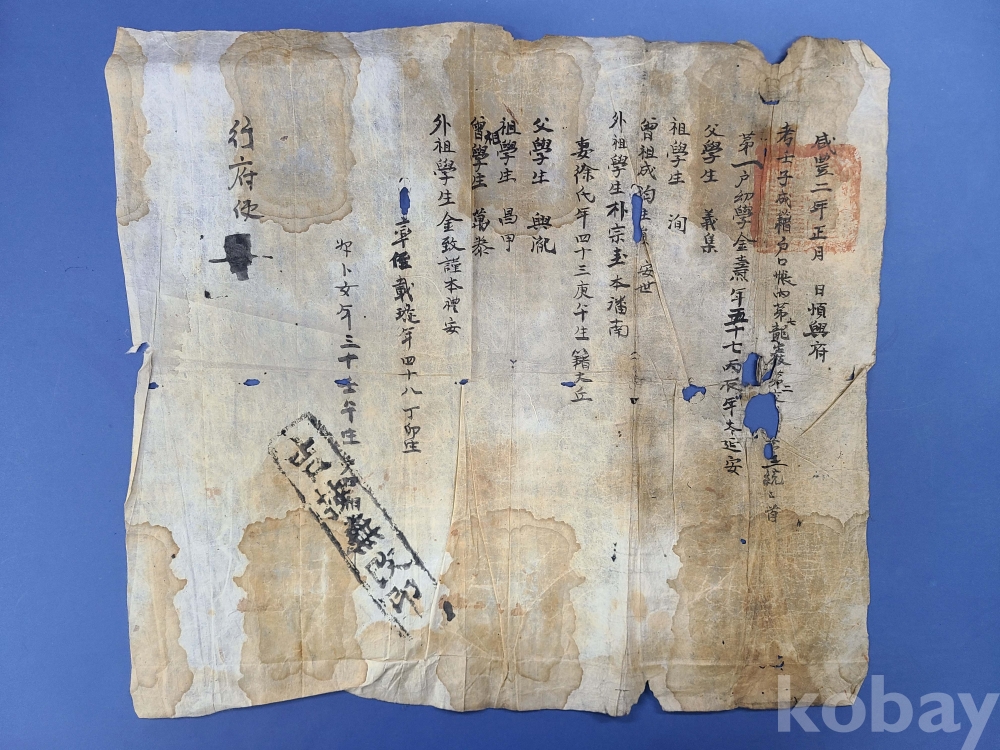 咸豊二年正月 日順興府
考士子成籍戶口帳內第七龍 第二 三統
第一戶幼學金 年五十七丙辰年本延安
父學生 義集
祖學生 洵
曾祖成均生員 安世
外祖學生朴宗圭本潘南
妻徐氏年四十三庚午生籍大丘
父學生 興
祖學生 昌甲
曾祖學生 萬泰
外祖學生金致謹本禮安
率侄載璇年四十八丁卯生
卜女年三十壬午生
行府使
無改印
kobay